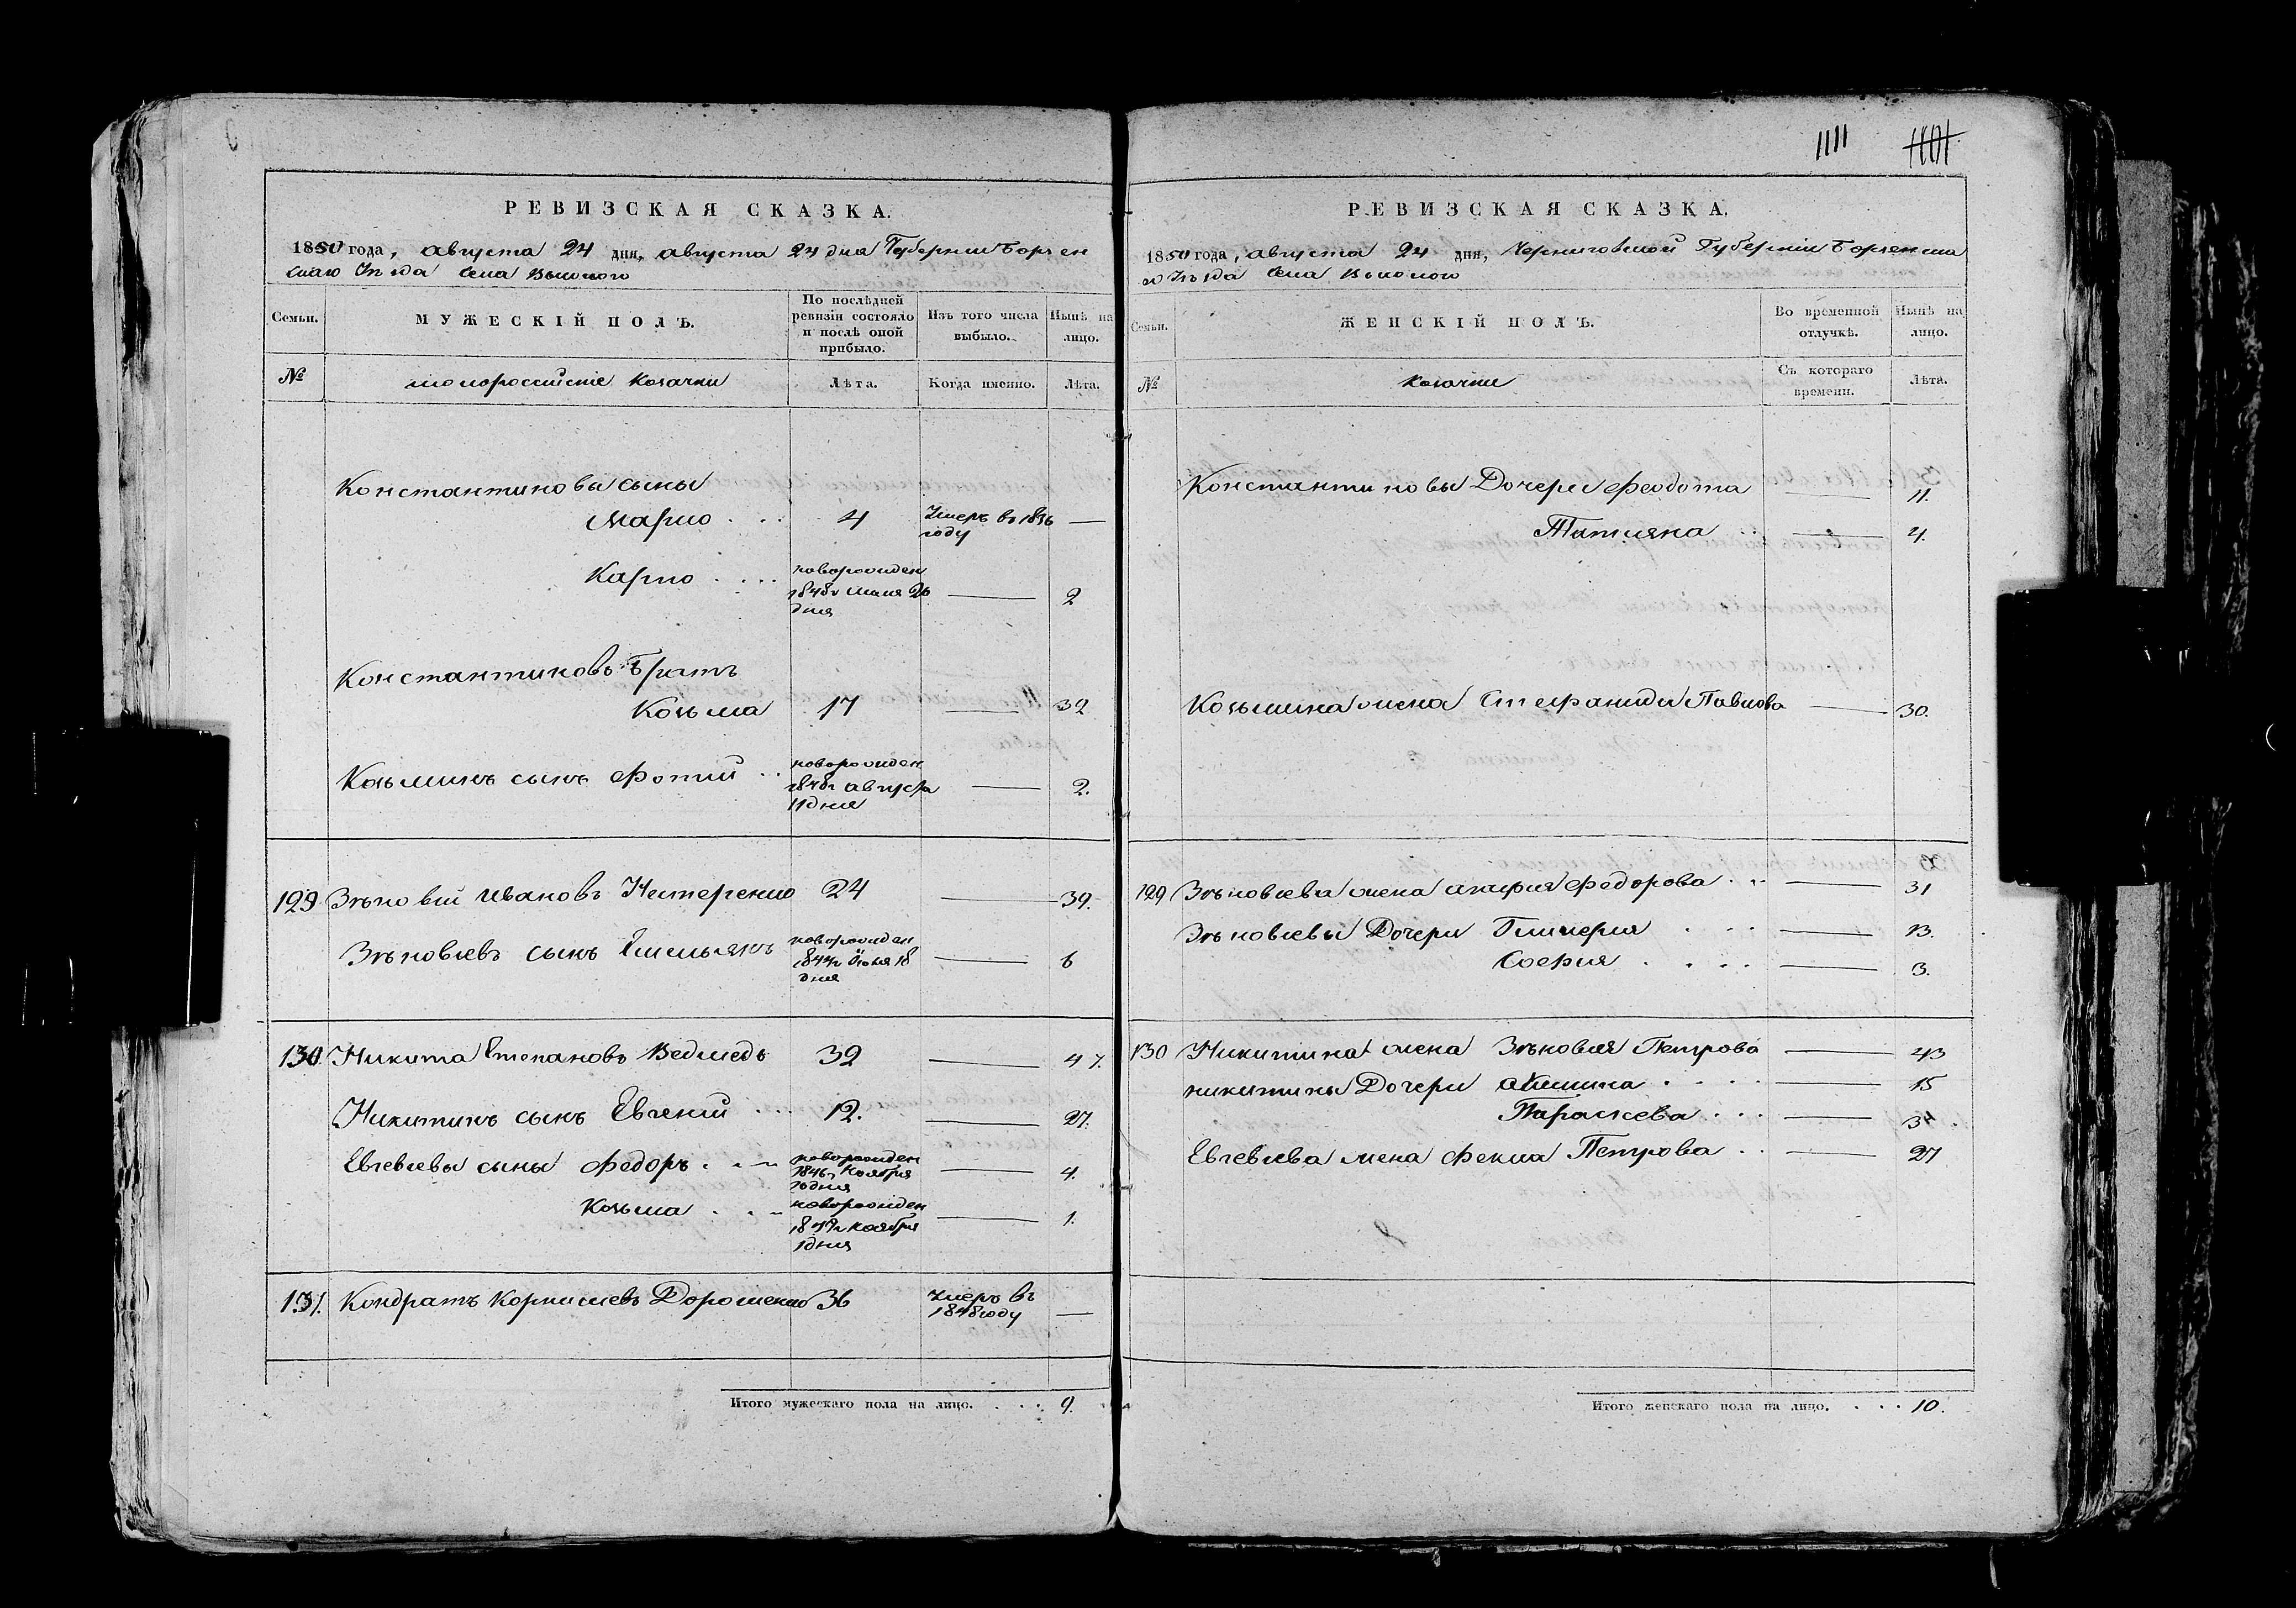 РЕВИЗСКАЯ СКАЗКА.
1850 года, августа 24 дня, августа 24 дня Губернии Борзен
скаго Уѣзда Села Высокого
Семьи.
МУЖЕСКІЙ ПОЛЪ.
По послѣдней
ревизіи состояло
и послѣ оной
прибыло.
Изъ того числа
выбыло.
Нынѣ на
лицо.
№
малороссийские козачки
Лѣта.
Когда именно.
Лѣта.
Константиновы сыны
Марко . . . 4 Умеръ в 1836 —
году
Карпо . . . новорожден
1848г 26 — 2
дня
Константиновъ Братъ
Козьма 17 — 32
Козьминъ сынъ Фотий . . новорожден
1848г августа — 2.
11 дня
129 Зѣновій Ивановъ Нестеренко 24 — 39.
Зѣновіевъ сынъ Емельянъ новорожден
1844г 18 — 6
дня
130 Никита Степановъ Ведмедь 32 — 47.
Никитинъ сынъ Евгений . . . 12. — 27.
Евгевіевы сыны Федоръ . . новорожден
1846г Ноября — 4.
дня
Козьма . . . новорожден
1849г ноября — 1.
1 дня
131. Кондратъ Корнилиевъ Дорошенко 36 Умеръ въ —
1848 году
Итого мужескаго пола на лицо. . . . 9.
1111 1101
РЕВИЗСКАЯ СКАЗКА.
1850 года, августа 24 дня, Черниговской Губерніи Борзенска
го Уѣзда Села Высокого
Семьи.
ЖЕНСКІЙ ПОЛЪ.
Во временной
отлучкѣ.
Нынѣ на
лицо.
№
козачки
Съ котораго
времени.
Лѣта.
Константиновы Дочери Феодота — 11.
Татияна . . — 4.
Козьмина жена Стефанида Павлова — 30.
129 Зѣновіева жена Агафия Федорова . . — 31
Зѣновіевы Дочери Гликерия . . . — 13.
София . . . . — 3.
130 Никитина жена Зѣновия Петрова — 43
никитины Дочери Акилина . . . . — 15
Параскева . . . —
Евгевіева жена Фекла Петрова . . — 27
Итого женскаго пола на лицо. . . . 10.